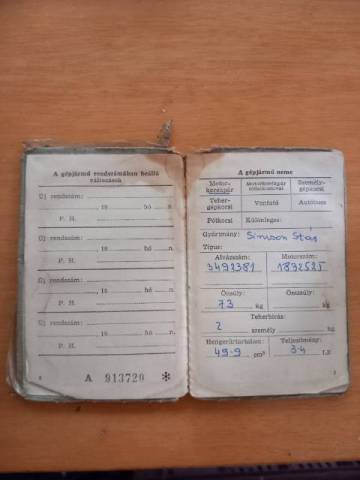 A gépjármű rendszámában beálló
változások
Új rendszám:
, 19 hó n.
P. H.
Új rendszám:
, 19 hó n.
P. H.
Új rendszám:
, 19 hó n.
P. H.
Új rendszám:
, 19 hó n.
P. H.
A 913720 ✻
A gépjármű neme
Motor-kerékpár Motorkerékpár oldalkocsival Személy-gépkocsi
Teher-gépkocsi Vontató Autóbusz
Pótkocsi Különleges:
Gyártmány: Simson Star
Típus:
Alvázszám: Motorszám:
3492381 1832525
Önsúly: Összsúly:
73 kg kg
Teherbírás:
2 személy kg
Hengerűrtartalom: Teljesítmény:
49.9 cm³ 3.4 LE